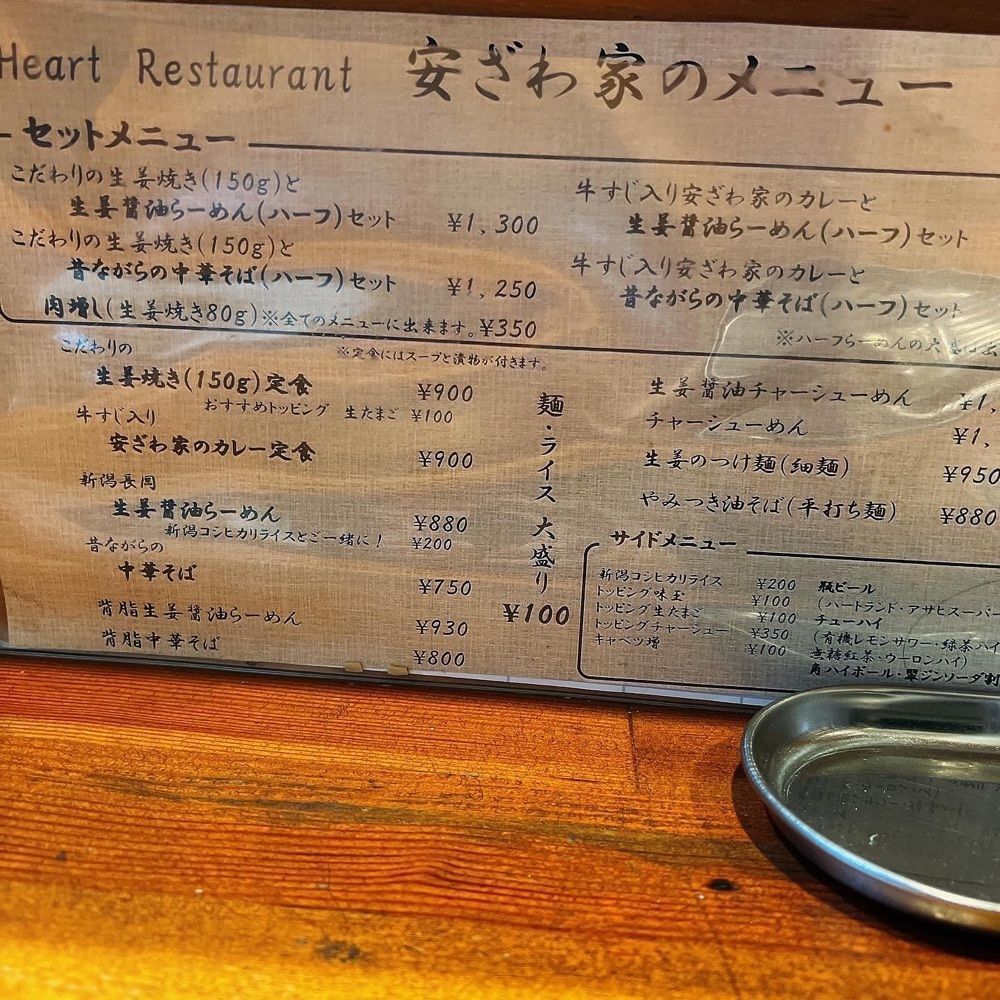 Heart Restaurant 安ざわ家のメニュー
セットメニュー
こだわりの生姜焼き(150g)と
生姜醤油らーめん(ハーフ)セット ¥1,300
こだわりの生姜焼き(150g)と
昔ながらの中華そば(ハーフ)セット ¥1,250
肉増し(生姜焼き80g)※全てのメニューに出来ます。¥350
牛すじ入り安ざわ家のカレーと
生姜醤油らーめん(ハーフ)セット
牛すじ入り安ざわ家のカレーと
昔ながらの中華そば(ハーフ)セット
※ハーフらーめんの大盛は
※定食にはスープと漬物が付きます。
こだわりの
生姜焼き(150g)定食 ¥900
おすすめトッピング 生たまご ¥100
牛すじ入り
安ざわ家のカレー定食 ¥900
新潟長岡
生姜醤油らーめん ¥880
新潟コシヒカリライスとご一緒に! ¥200
昔ながらの
中華そば ¥750
背脂生姜醤油らーめん ¥930
背脂中華そば ¥800
麺・ライス 大盛り
¥100
生姜醤油チャーシューめん ¥1,
チャーシューめん ¥1,
生姜のつけ麺(細麺) ¥950
やみつき油そば(平打ち麺) ¥880
サイドメニュー
新潟コシヒカリライス ¥200
トッピング味玉 ¥100
トッピング生たまご ¥100
トッピングチャーシュー ¥350
キャベツ増 ¥100
瓶ビール
(ハートランド・アサヒスーパー
チューハイ
(有機レモンサワー・緑茶ハイ
無糖紅茶・ウーロンハイ)
角ハイボール・翠ジンソーダ割